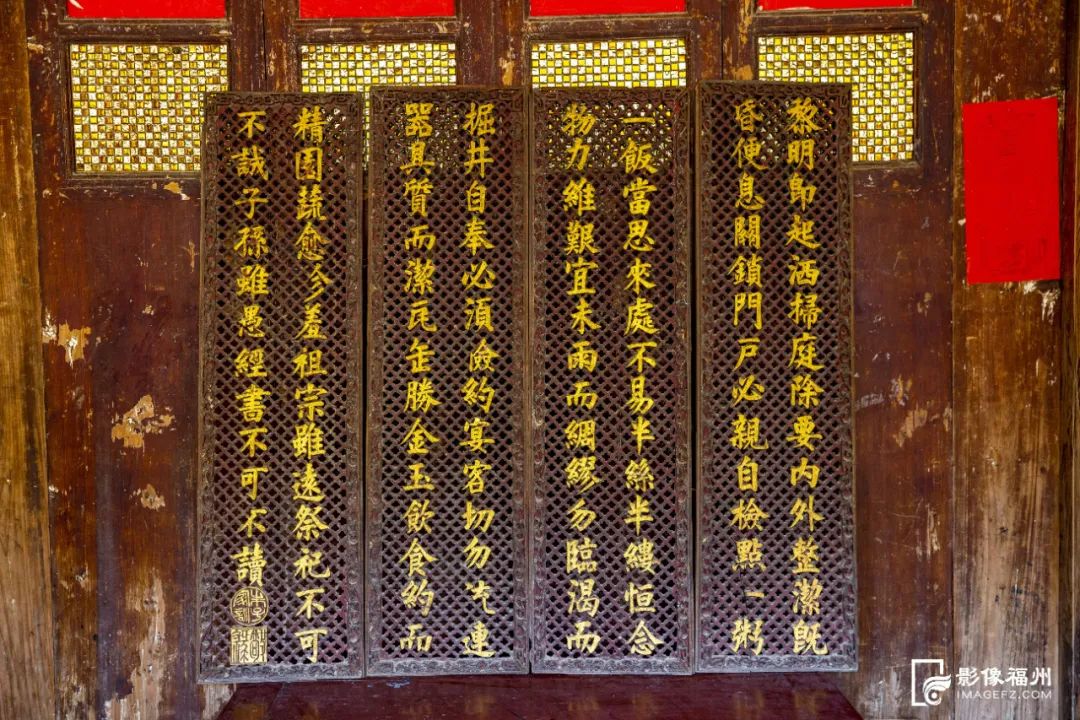 黎明即起洒掃庭除要内外整潔既
昏便息關鎖門戸必親自檢點一粥
一飯當思來處不易半絲半縷恒念
物力維艱宜未雨而綢繆勿臨渴而
掘井自奉必須儉約宴客切勿流連
器具質而潔瓦缶勝金玉飲食約而
精園蔬愈珍羞祖宗雖遠祭祀不可
不誠子孫雖愚經書不可不讀
影像福州
IMAGEFZ.COM